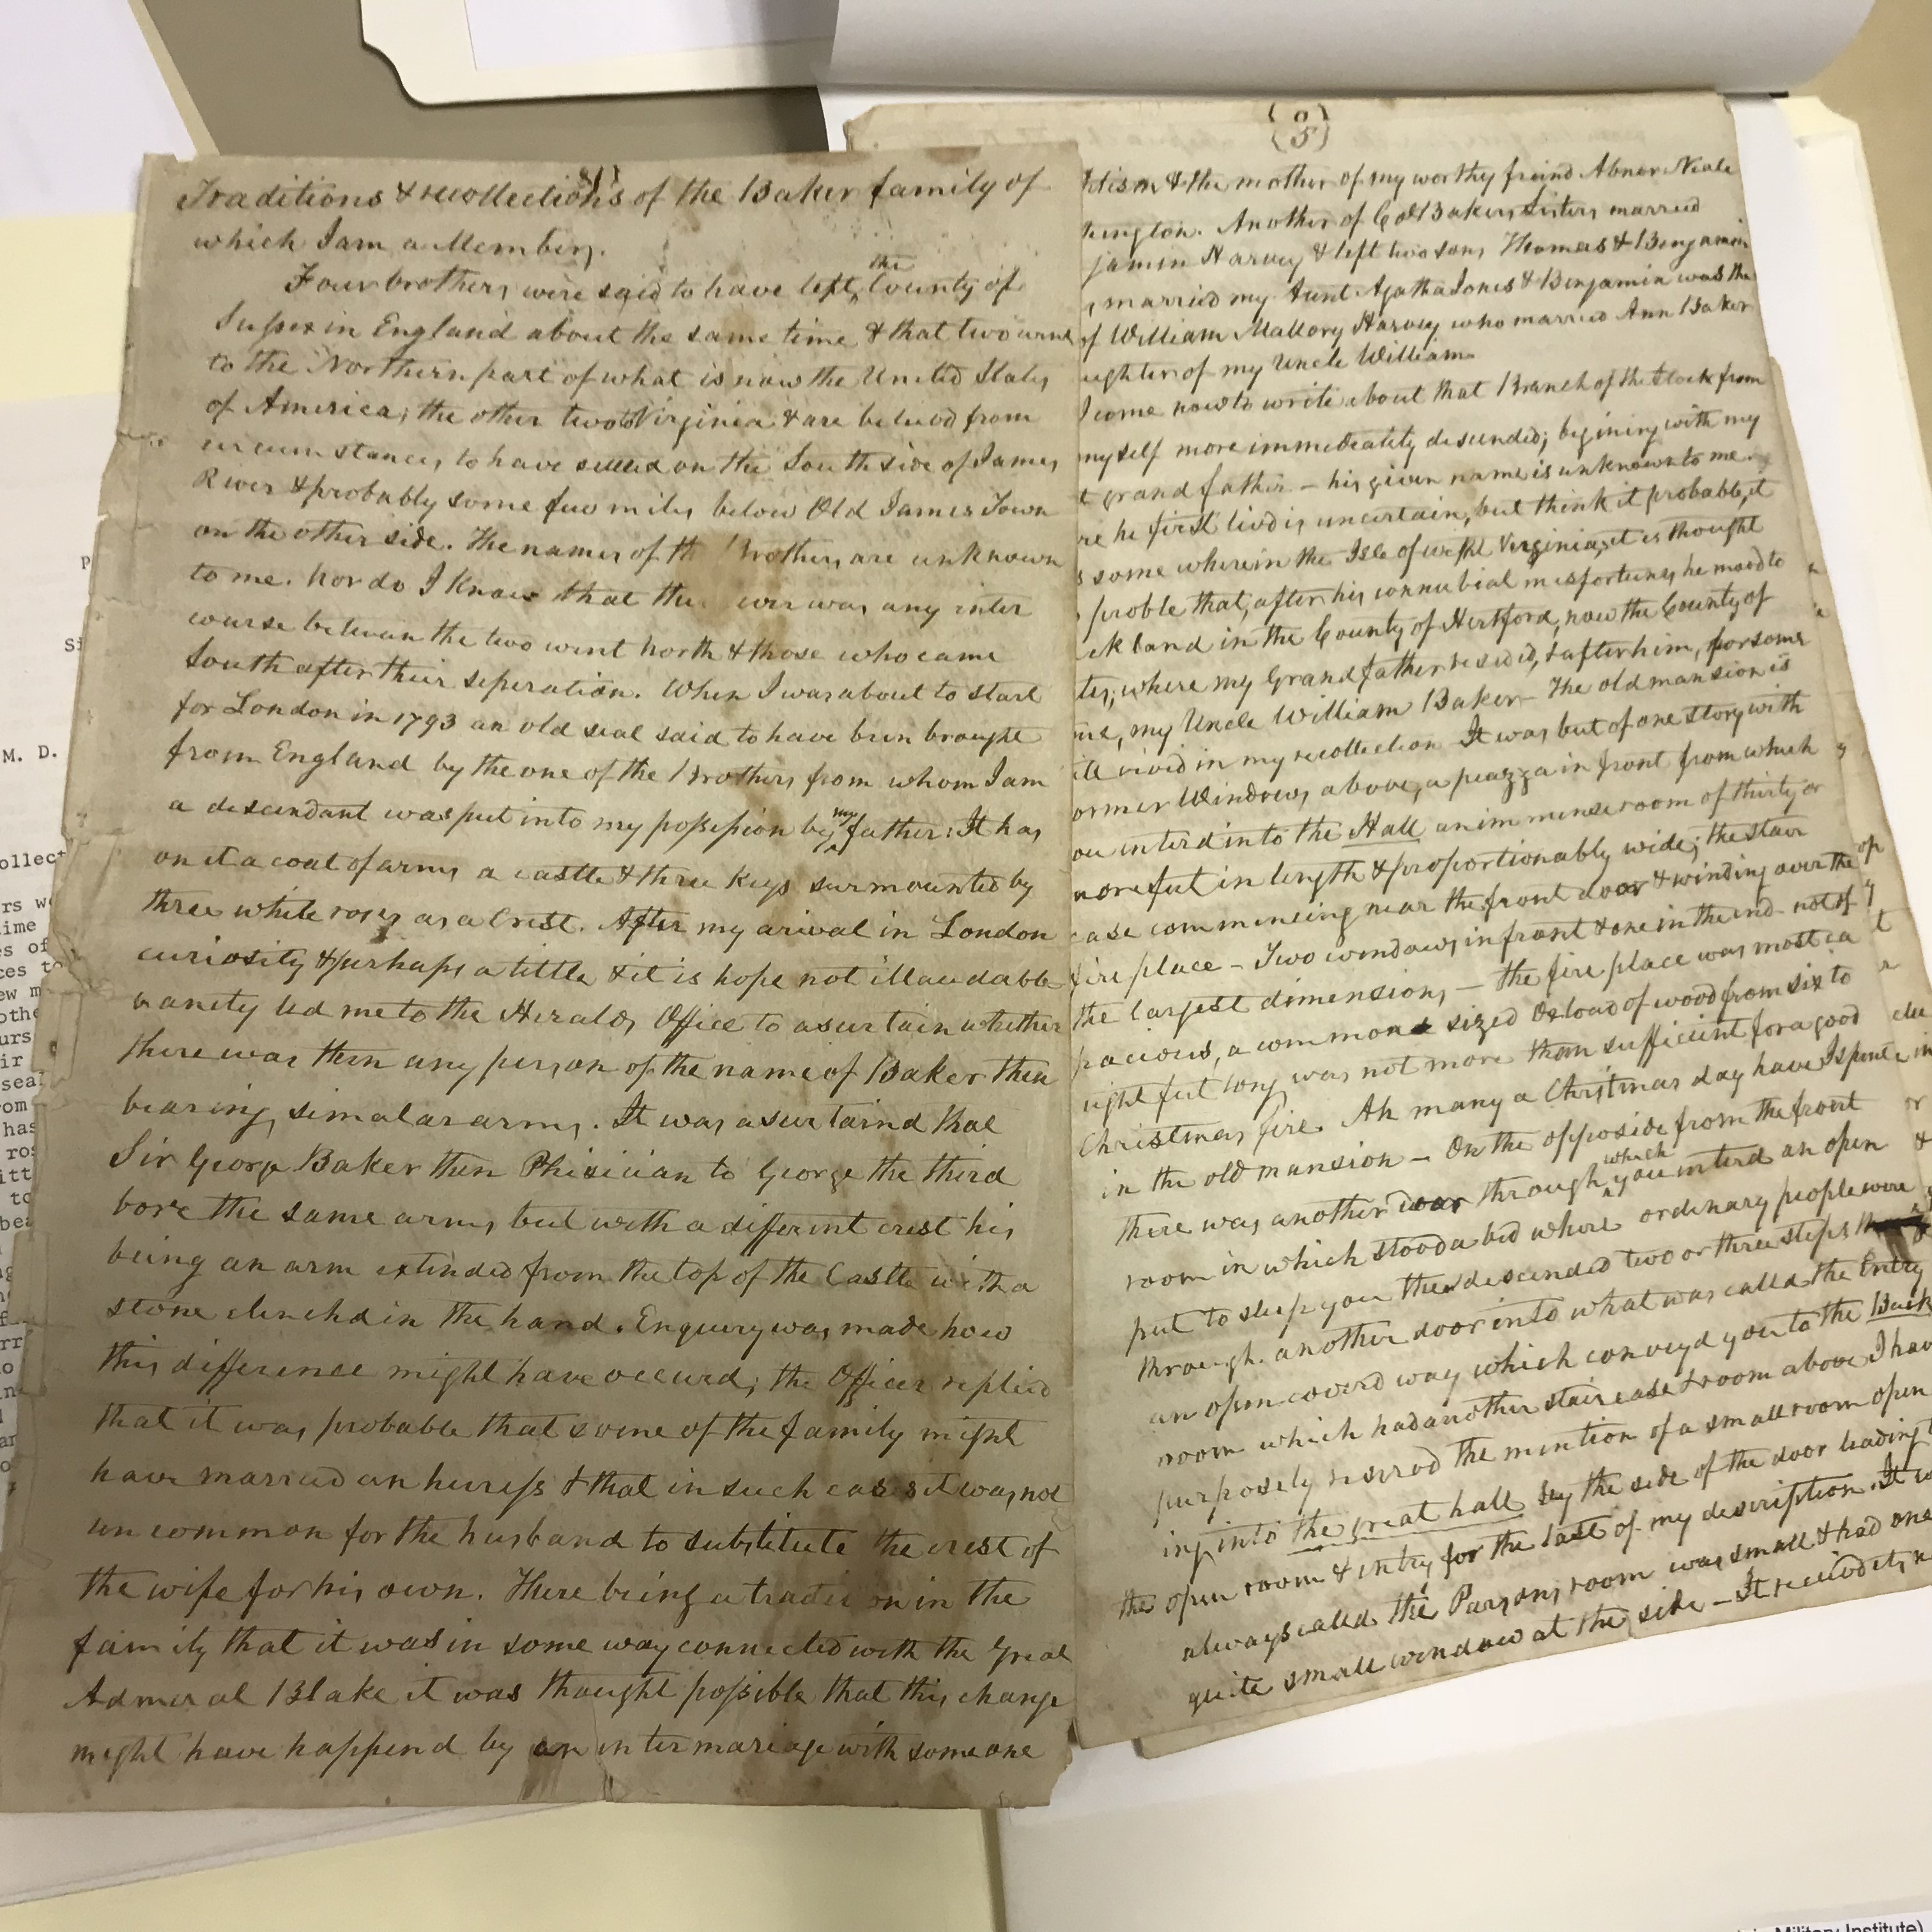 (1)
Traditions & recollections of the Baker family of
which I am a Member.
Four brothers were said to have left the County of
Sussex in England about the same time & that two went
to the Northern part of what is now the United States
of America; the other two to Virginia & are believd from
circumstances to have settled on the South side of James
River & probably some few miles below Old James Town
on the other side. The names of th Brothers are unknown
to me. nor do I know that the ever was any inter
course between the two went north & those who came
South after their seperation. When I was about to start
for London in 1793 an old seal said to have been brought
from England by the one of the Brothers from whom I am
a descendant was put into my possession by my father: It has
on it a coat of arms a castle & three keys surmounted by
three white roses as a Crest. After my arival in London
curiosity & perhaps a little & it is hope not illaudable
vanity led me to the Heralds Office to asertain whether
there was then any person of the name of Baker then
bearing simalar arms. It was asertaind that
Sir George Baker then Phisician to George the third
bore the same arms but with a different crest his
being an arm extended from the top of the Castle with a
stone clenchd in the hand. Enquiry was made how
this difference might have occurd; the Officer replied
that it was probable that some of the family might
have married an heiress & that in such cases it was not
uncommon for the husband to substitute the crest of
the wife for his own. There being a tradition in the
family that it was in some way connected with the great
Admiral Blake it was thought possible that this change
might have happend by an intermariage with some one
(5)
& the mother of my worthy freind Abner Neale
Another of Col Bakers Sisters married
Harvey & left two sons Thomas & Benjamin
married my Aunt Agatha Jones & Benjamin was the
of William Mallory Harvey who married Ann Baker
of my Uncle William
I come now to write about that Branch of the stock from
myself more immediately descended; begining with my
grand father - his given name is unknown to me.
he first livd is uncertain, but think it probable, it
some where in the Isle of weght Virginia, it is thought
proble that, after his connubial misfortunes he movd to
land in the County of Hertford, now the County of
where my Grandfather resided, & after him, for some
my Uncle William Baker - The old mansion is
vivid in my recollection It was but of one story with
Windows above, a peazza in front from which
enterd into the Hall an immense room of thirty or
more feet in length & proportionably wide; the stair
case commencing near the front door & winding over the
fire place - Two windows in front & one in the end not of
the largest dimensions - the fire place was most ca
pacious, a common sized Oxload of wood from six to
eight feet long was not more than sufficient for a good
Christmas fire. Ah many a Christmas day have I spent
in the old mansion - On the opposide from the front
there was another door through which you enterd an open
room in which stood a bed where ordinary people were
put to sleep you then descended two or three steps
through another door into what was calld the Entry
an open coverd way which conveyd you to the Back
room which had another staircase & room above I hav
purposely reservd the mention of a small room open
ing into the great hall by the side of the door leading
the open room & entry for the last of my description. It
always called the Parsons room was small & had one
quite small window at the side - It received its
P
Si
M. D.
ollect
rs w
ime
es of
ces to
ew m
othe
urs
ir
seal
rom
has
ros
itt
to
bea
Military Institute)